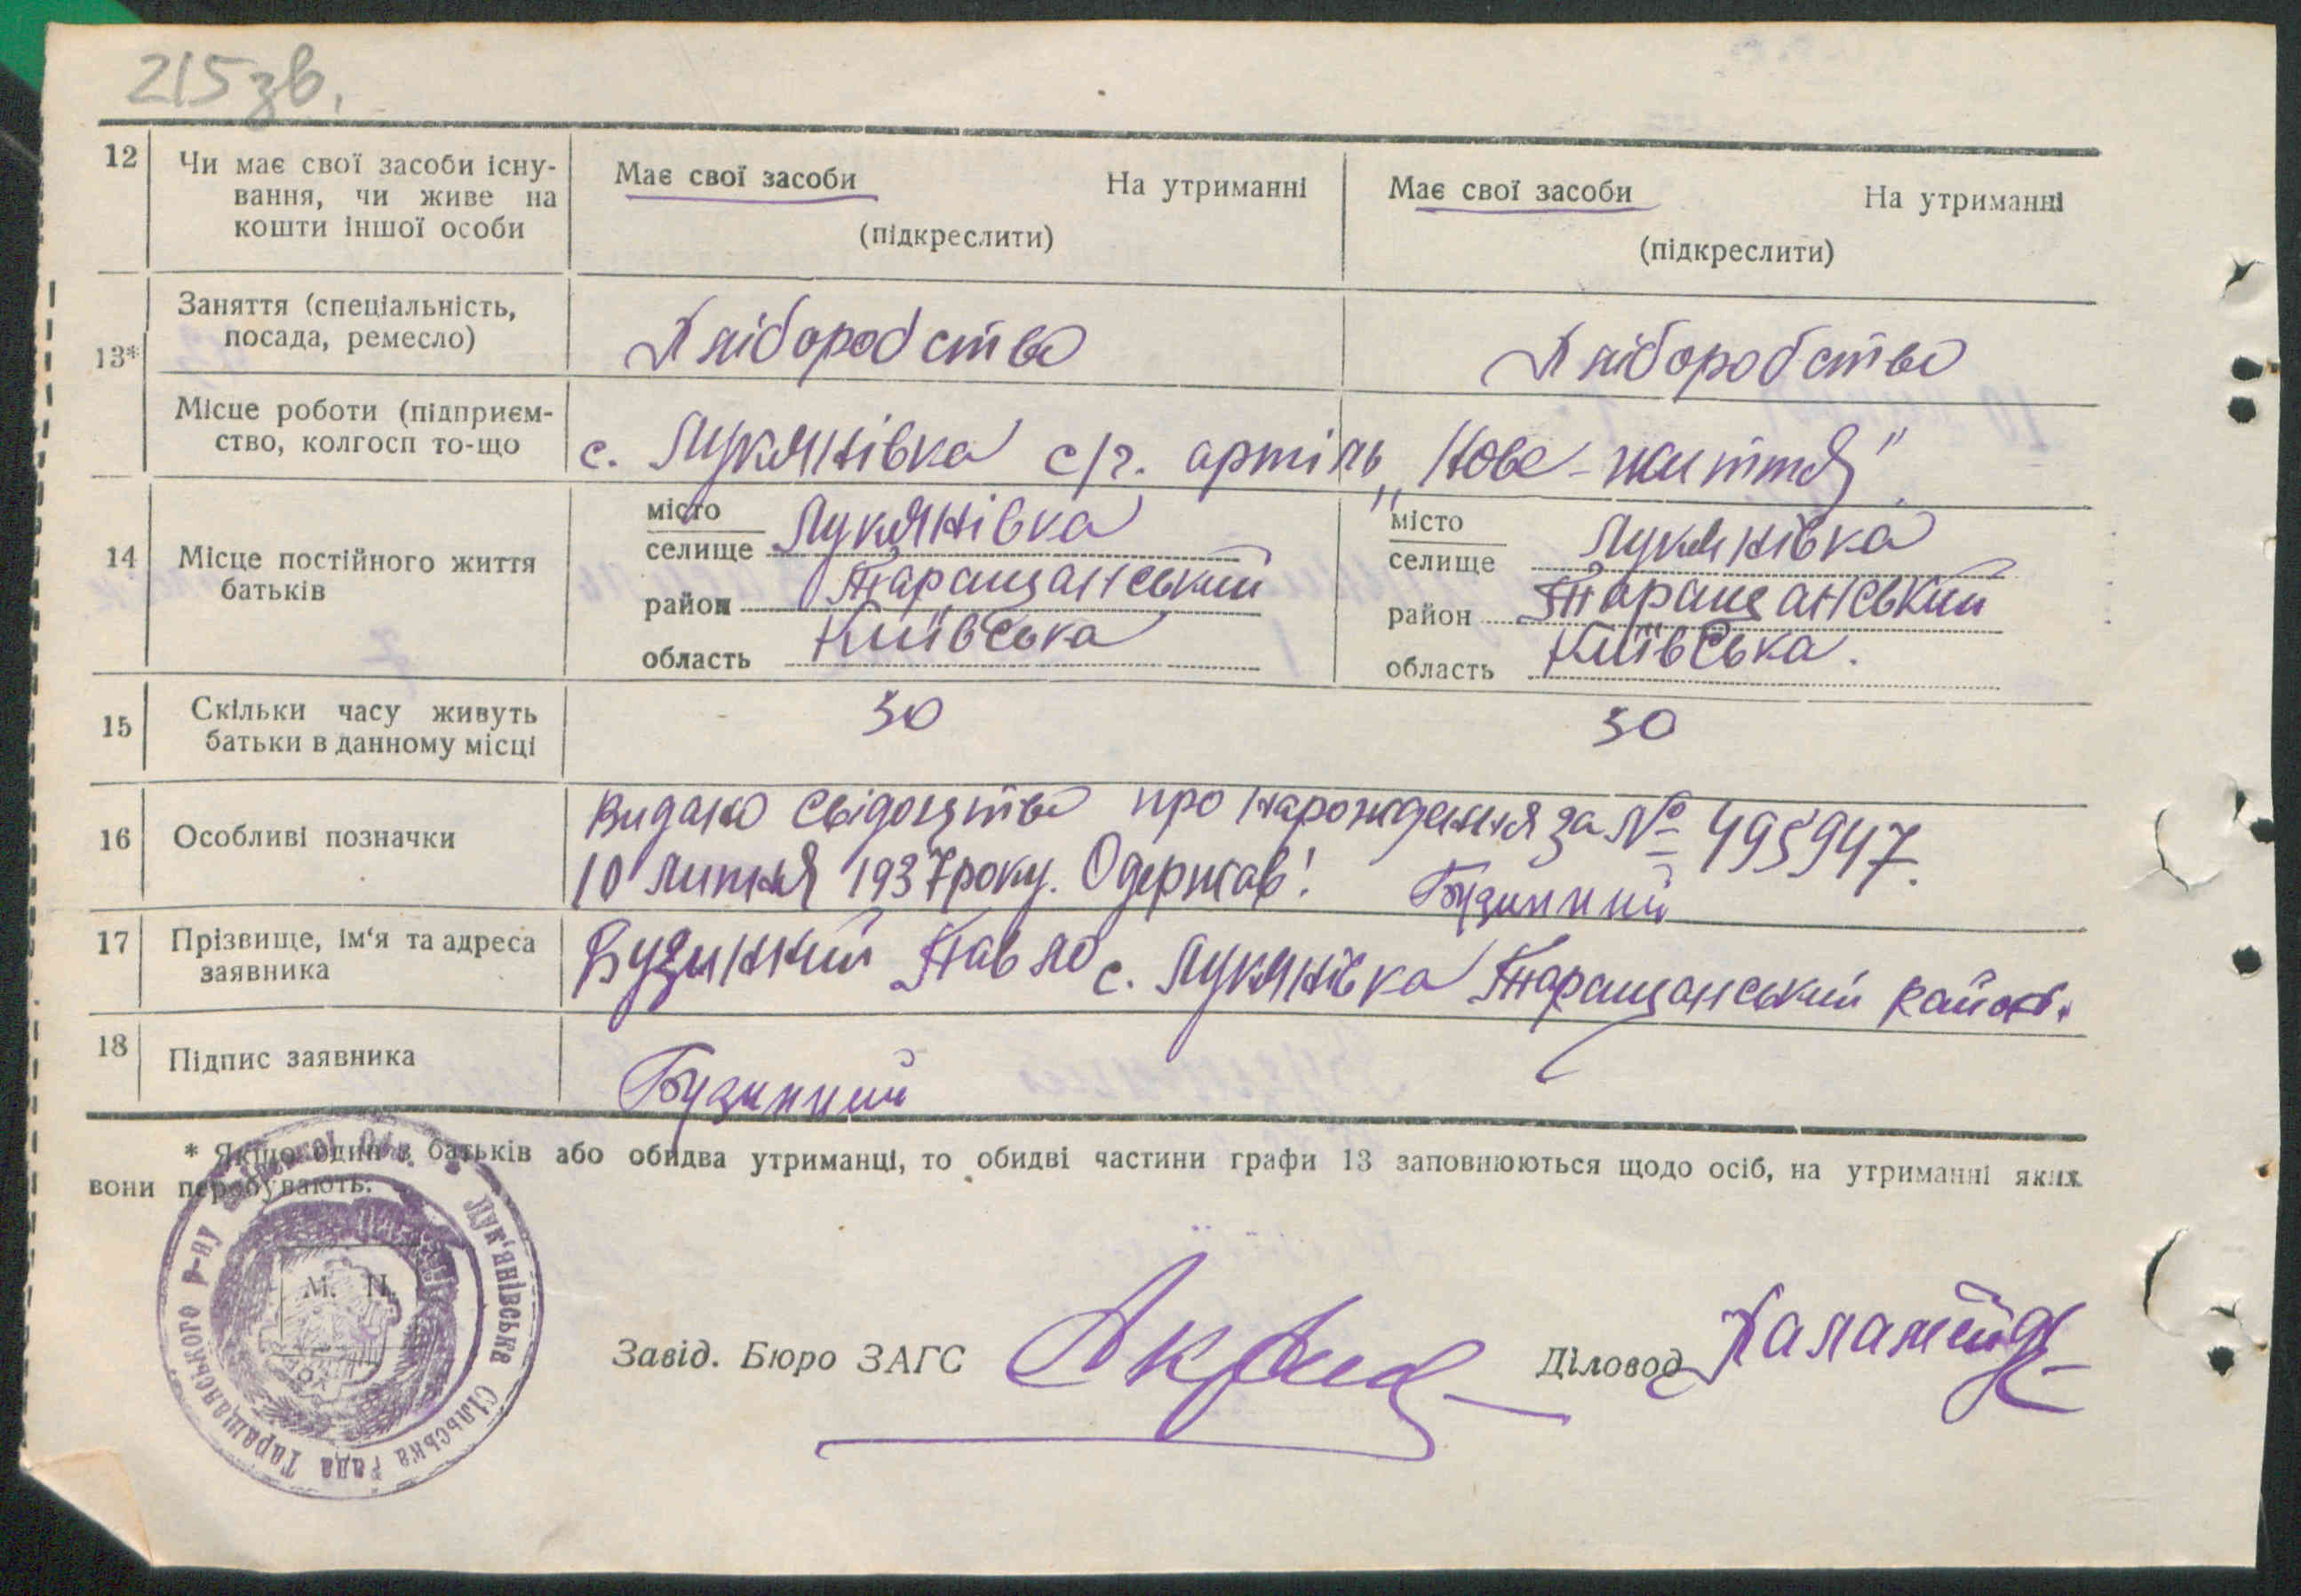 215 зв.
12 Чи має свої засоби існу-
вання, чи живе на
кошти іншої особи
Має свої засоби На утриманні
(підкреслити)
Має свої засоби На утриманні
(підкреслити)
13* Заняття (спеціальність,
посада, ремесло)
Хліборобство
Хліборобство
Місце роботи (підприєм-
ство, колгосп то-що
с. Лукянівка с/г. артіль „Нове-життя"
14 Місце постійного життя
батьків
місто
селище Лукянівка
район Таращанський
область Київська
місто
селище Лукянівка
район Таращанський
область Київська.
15 Скільки часу живуть
батьки в данному місці
30
30
16 Особливі позначки
Видано свідоцтво про народження за № 495947.
10 липня 1937 року. Одержав! Бузинний
17 Прізвище, ім'я та адреса
заявника
Бузинний Павло с. Лукянівка Таращанський район.
18 Підпис заявника
Бузинний
* Якщо один з батьків або обидва утриманці, то обидві частини графи 13 заповнюються щодо осіб, на утриманні яких
вони перебувають.
М. П.
Лук'янівська сільська рада Таращанського р-ну
Завід. Бюро ЗАГС
Діловод